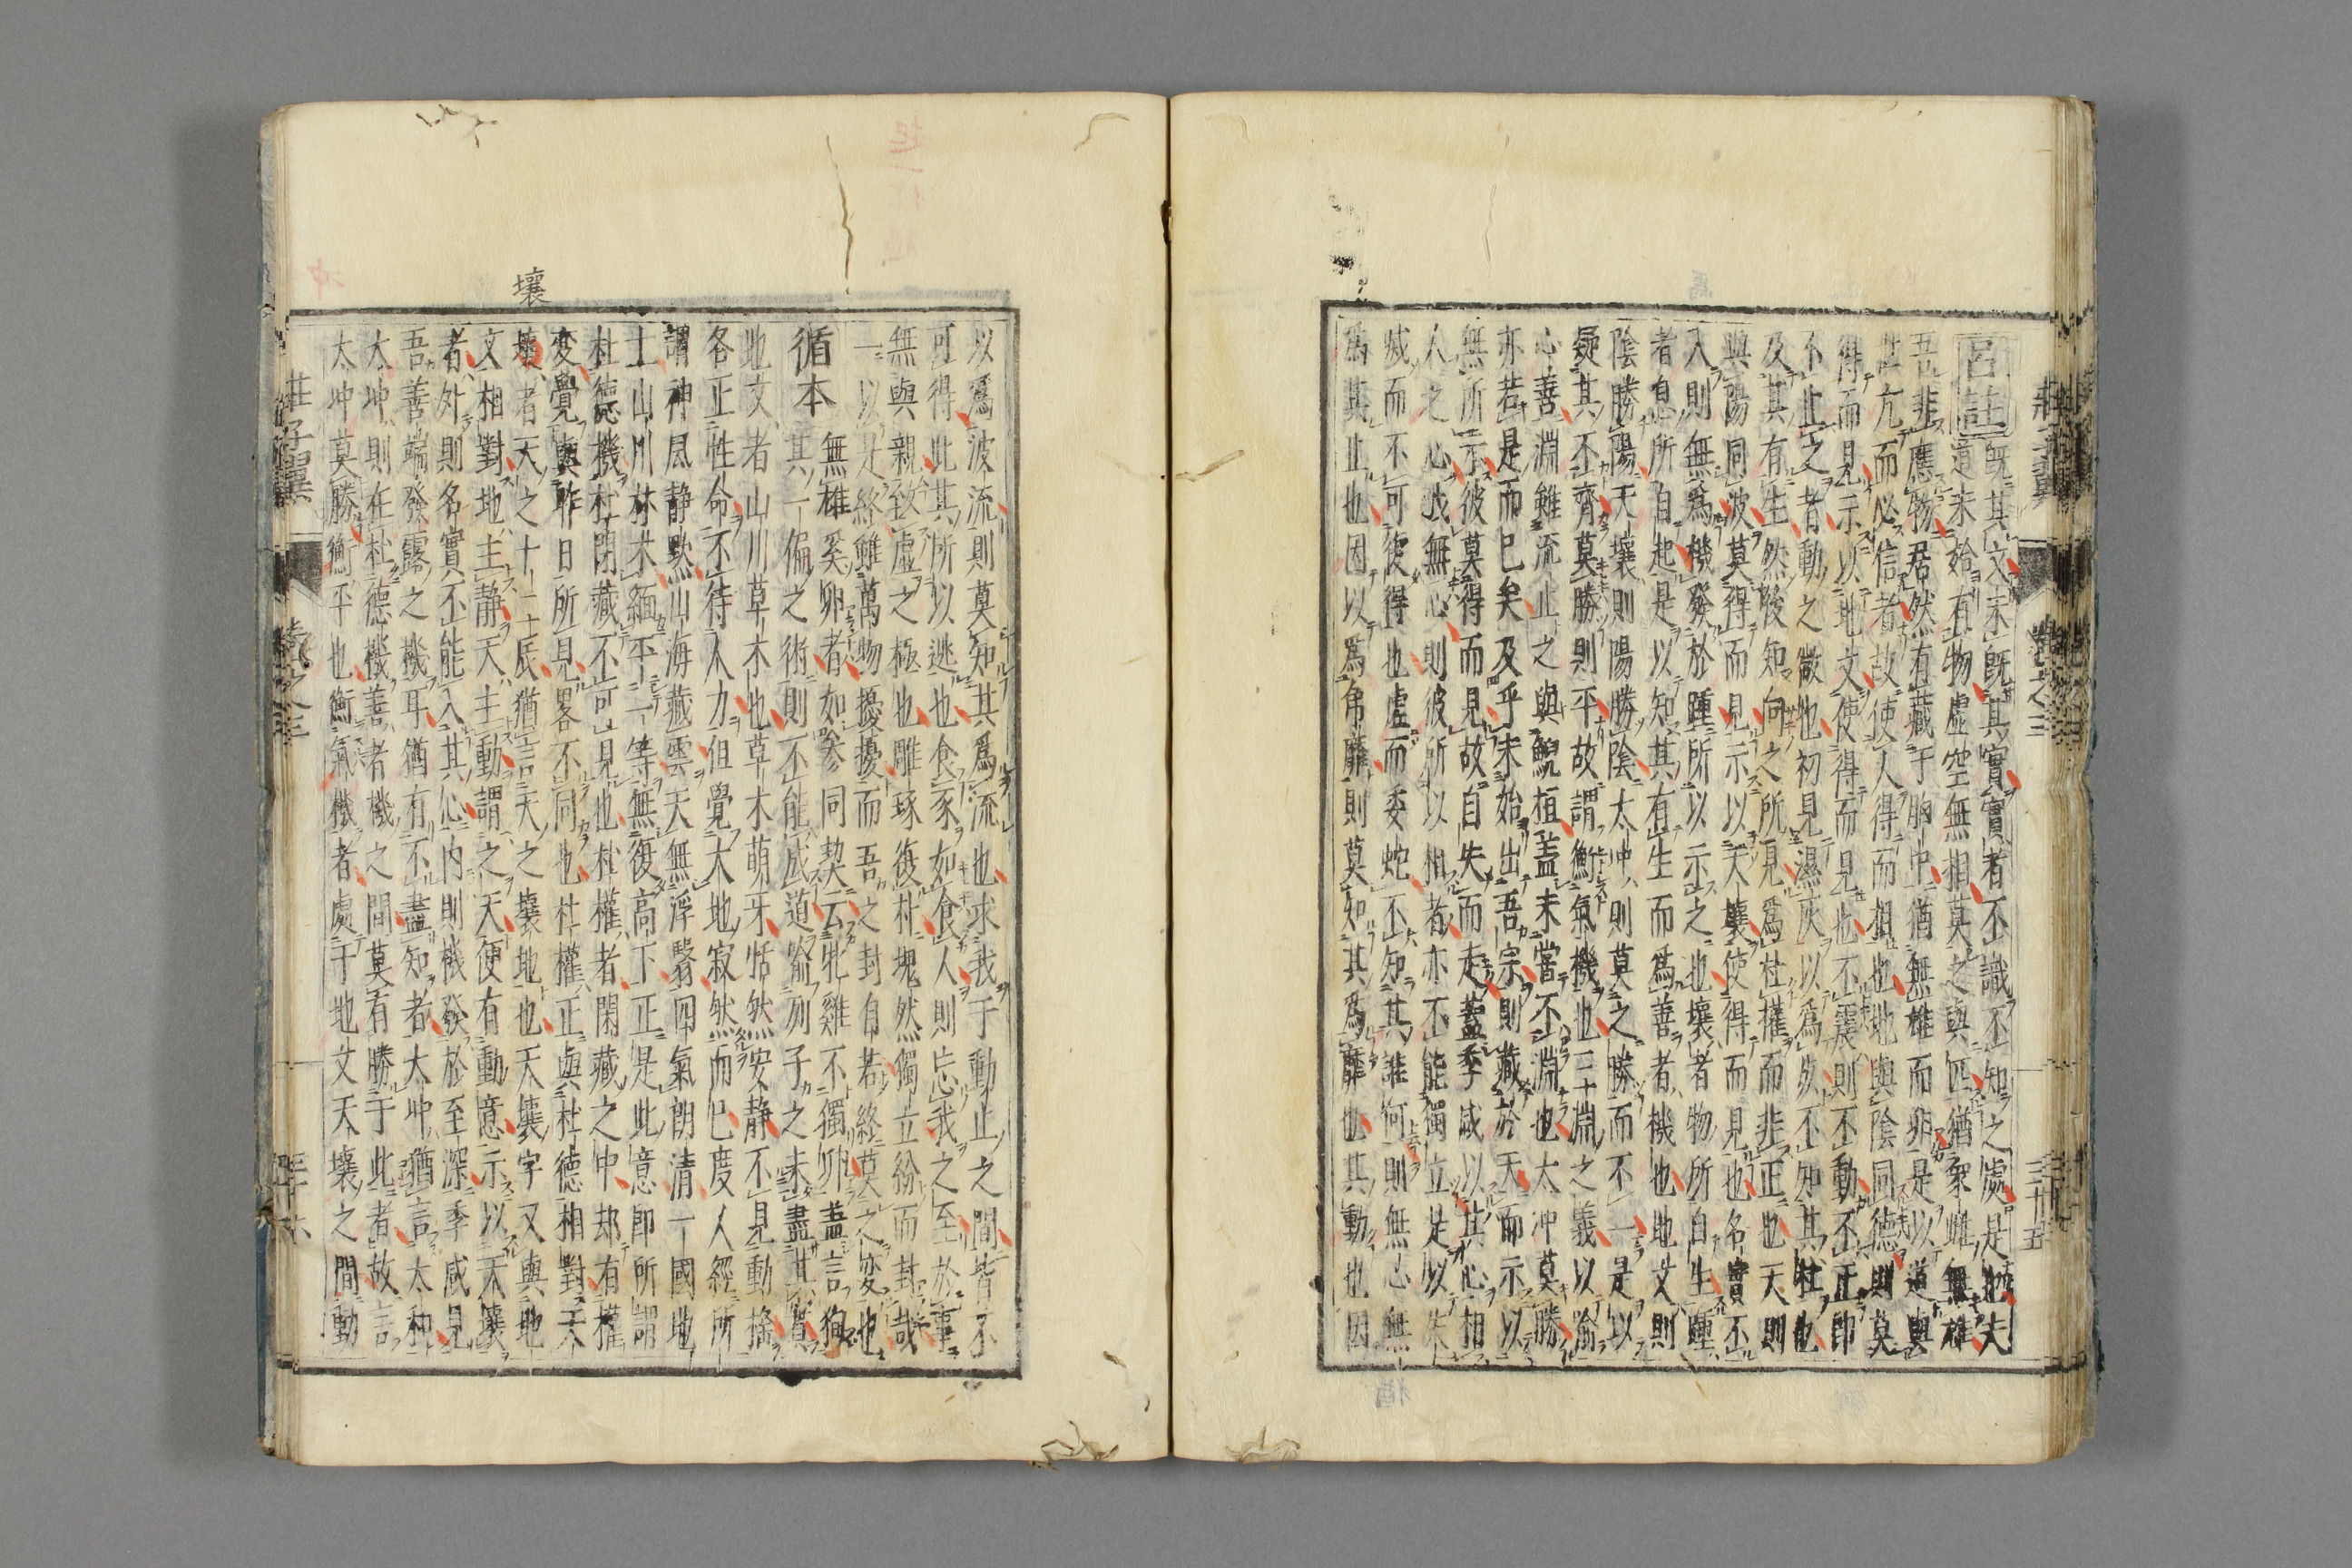 呂註
既其文未既其實實者不識不知之處是也夫
道未始有物虛空無相莫之與匹猶衆雌無雄
吾非應物居然有藏于胸中猶無雄而非是以道與
世亢而必信者故使人得而相也地與陰同德則莫
得而見示以地文使得而見也不震則不動不正卽
不止之者動之微也初見濕灰以爲死不知其杜也
及其有生然後知向之所見爲杜權而非正也天則
與陽同波莫得而見示以天壤使得而見也名實不
入則無爲機發於踵所以示之也壤者物所自生踵
者息所自起是以知其有生而爲善者機也地文則
陰勝陽天壤則陽勝陰太冲則莫之勝而不一是以
疑其不齊莫勝則平故謂衡氣機也三十淵之義以喩
心善淵雖流止之與鯢桓蓋未嘗不淵也太冲莫勝
亦若是而已矣及乎未始出吾宗則藏於天而示以
無所示彼莫得而見故自失而走蓋季咸以其心相
人之心我無心則彼所以相者亦不能獨立是以失
滅而不可復得也虛而委蛇不知其誰何則無心無
爲其止也因以爲弟靡則莫知其爲靡也其動也因
莊子翼 卷之三 三十五
以爲波流則莫知其爲流也求我于動止之間皆不
可得此其所以逃也食豕如食人則忘我之至於事
無與親致虛之極也雕琢復朴塊然獨立紛而封哉
一以是終雖萬物擾擾而吾之封自若終莫之変也
循本
無雄奚卵者如參同契云牝雞不獨卵蓋言狥
其一偏之術則不能成道喩列子之未盡其實
地文者山川草木也草木萌牙恬然安静不見動搖
各正性命不待人力但覺大地寂然而已度人經所
謂神風静默山海藏雲天無浮翳四氣朗清一國地
土山川林木緬平一等無復高下正是此意卽所謂
杜德機杜閉藏不可見也杜權者閉藏之中却有權
変覺與昨日所見畧不同也杜權正與杜德相對天
壤者天之十二辰猶言天之壤地也天壤字又與地
文相對地主静天主動謂之天便有動意示以天壤
者外則名實不能入其心内則機發於至深季咸見
吾善端發露之機耳猶有不盡知者大冲猶言太和
大冲則在杜德機善者機之間莫有勝于此者故言
太冲莫勝衡平也衡氣機者處于地文天壤之間動
壤
莊子翼 卷之三 三十六